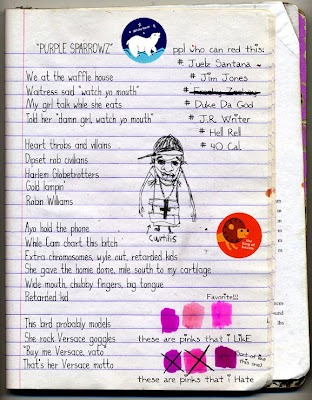 "PURPLE SPARROWZ"
We at the waffle house
Waitress sad "watch yo mouth"
My girl talk while she eats
Told her "damn girl, watch yo mouth"
Heart throbs and villains
Dipset rob civilians
Harlem Globetrotters
Gold lampin'
Robin Williams
Ayo hold the phone
While Cam chart this bitch
Extra chromosomes, wyle out, retarded kids
She gave the home dome, mile south to my cartilage
Wide mouth, chubby fingers, big tongue
Retarded kid
This bird probably models
She rock Versace goggles
"Buy me Versace, vato"
That's her Versace motto
ppl who can red this:
# Juelz Santana
# Jim Jones
# Duke Da God
# J.R. Writer
# Hell Rell
# 40 Cal.
Curthlis
Favorite!!!
these are pinks that i LiKE
(sort of like this one)
these are pinks that i Hate